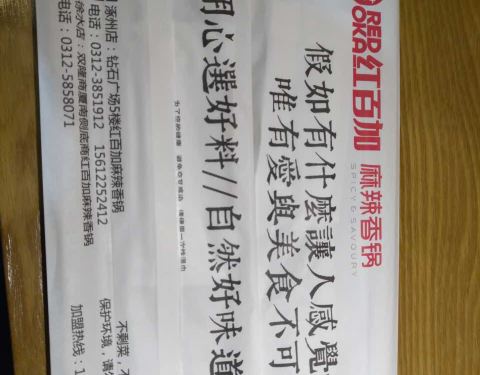 RED
OKA 红百加 麻辣香锅
SPICY & SAVOURY
假如有什麼讓人感覺
唯有愛與美食不可
用心選好料//自然好味道
涿州店:钻石广场5楼红百加麻辣香锅
电话:0312-3851912 15612252412
徐水店:双隆商厦南侧底商红百加麻辣香锅
电话:0312-5858071
不剩菜,
保护环境,请
加盟热线:1